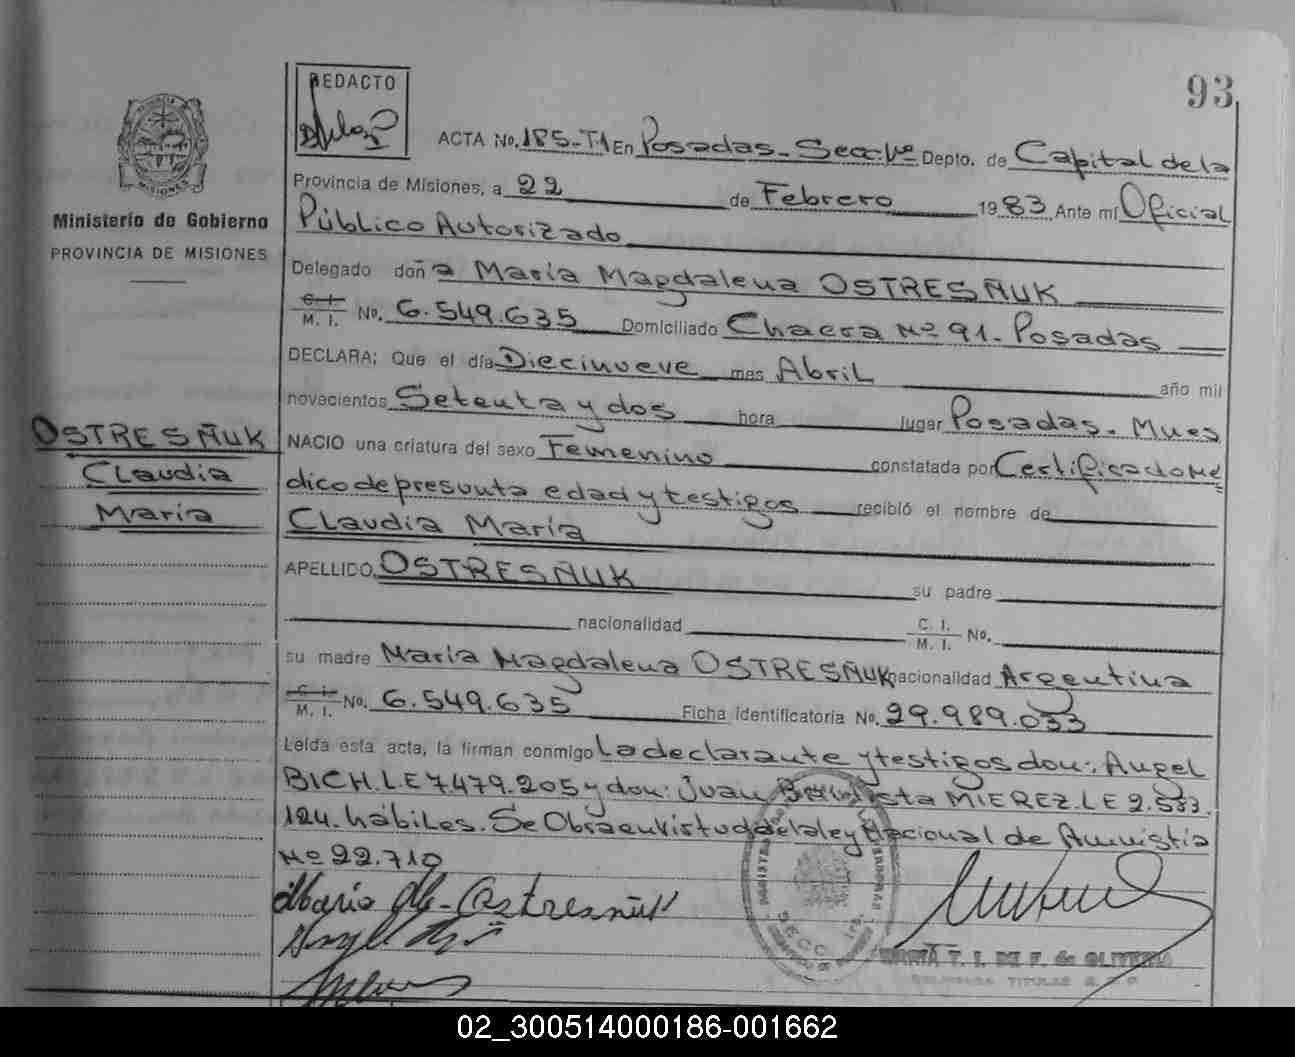 93
REDACTO
ACTA No. 185-T1 En Posadas-Secc.1ª Depto. de Capital de la
Provincia de Misiones, a 22 de Febrero 1983 Ante mí Oficial
Público Autorizado
Delegado doña María Magdalena OSTRESÑUK
C. I. M. I. No. 6.549.635 Domiciliado Chacra Nº 91. Posadas
DECLARA; Que el día Diecinueve mes Abril año mil
novecientos Setenta y dos hora lugar Posadas. Mnes
NACIO una criatura del sexo Femenino constatada por Certificado Mé
dico de presunta edad y testigos recibió el nombre de
Claudia María
APELLIDO OSTRESÑUK su padre
nacionalidad C. I. M. I. No.
su madre María Magdalena OSTRESÑUK nacionalidad Argentina
C. I. M. I. No. 6.549.635 Ficha identificatoria No. 29.989.033
Leída esta acta, la firman conmigo La declarante y testigos don: Angel
BICH.L.E 7.479.205 y don: Juan Bautista MIEREZ.L E 2.583.
124. hábiles. Se Obra en virtud de la ley Nacional de Amnistía
Nº 22.710
María M. Ostresñuk
MARIA T. I. DE F. de OLIVEIRA
DELEGADA TITULAR
SECC. 1ra.
Ministerio de Gobierno
PROVINCIA DE MISIONES
OSTRESÑUK
Claudia
María
02_300514000186-001662